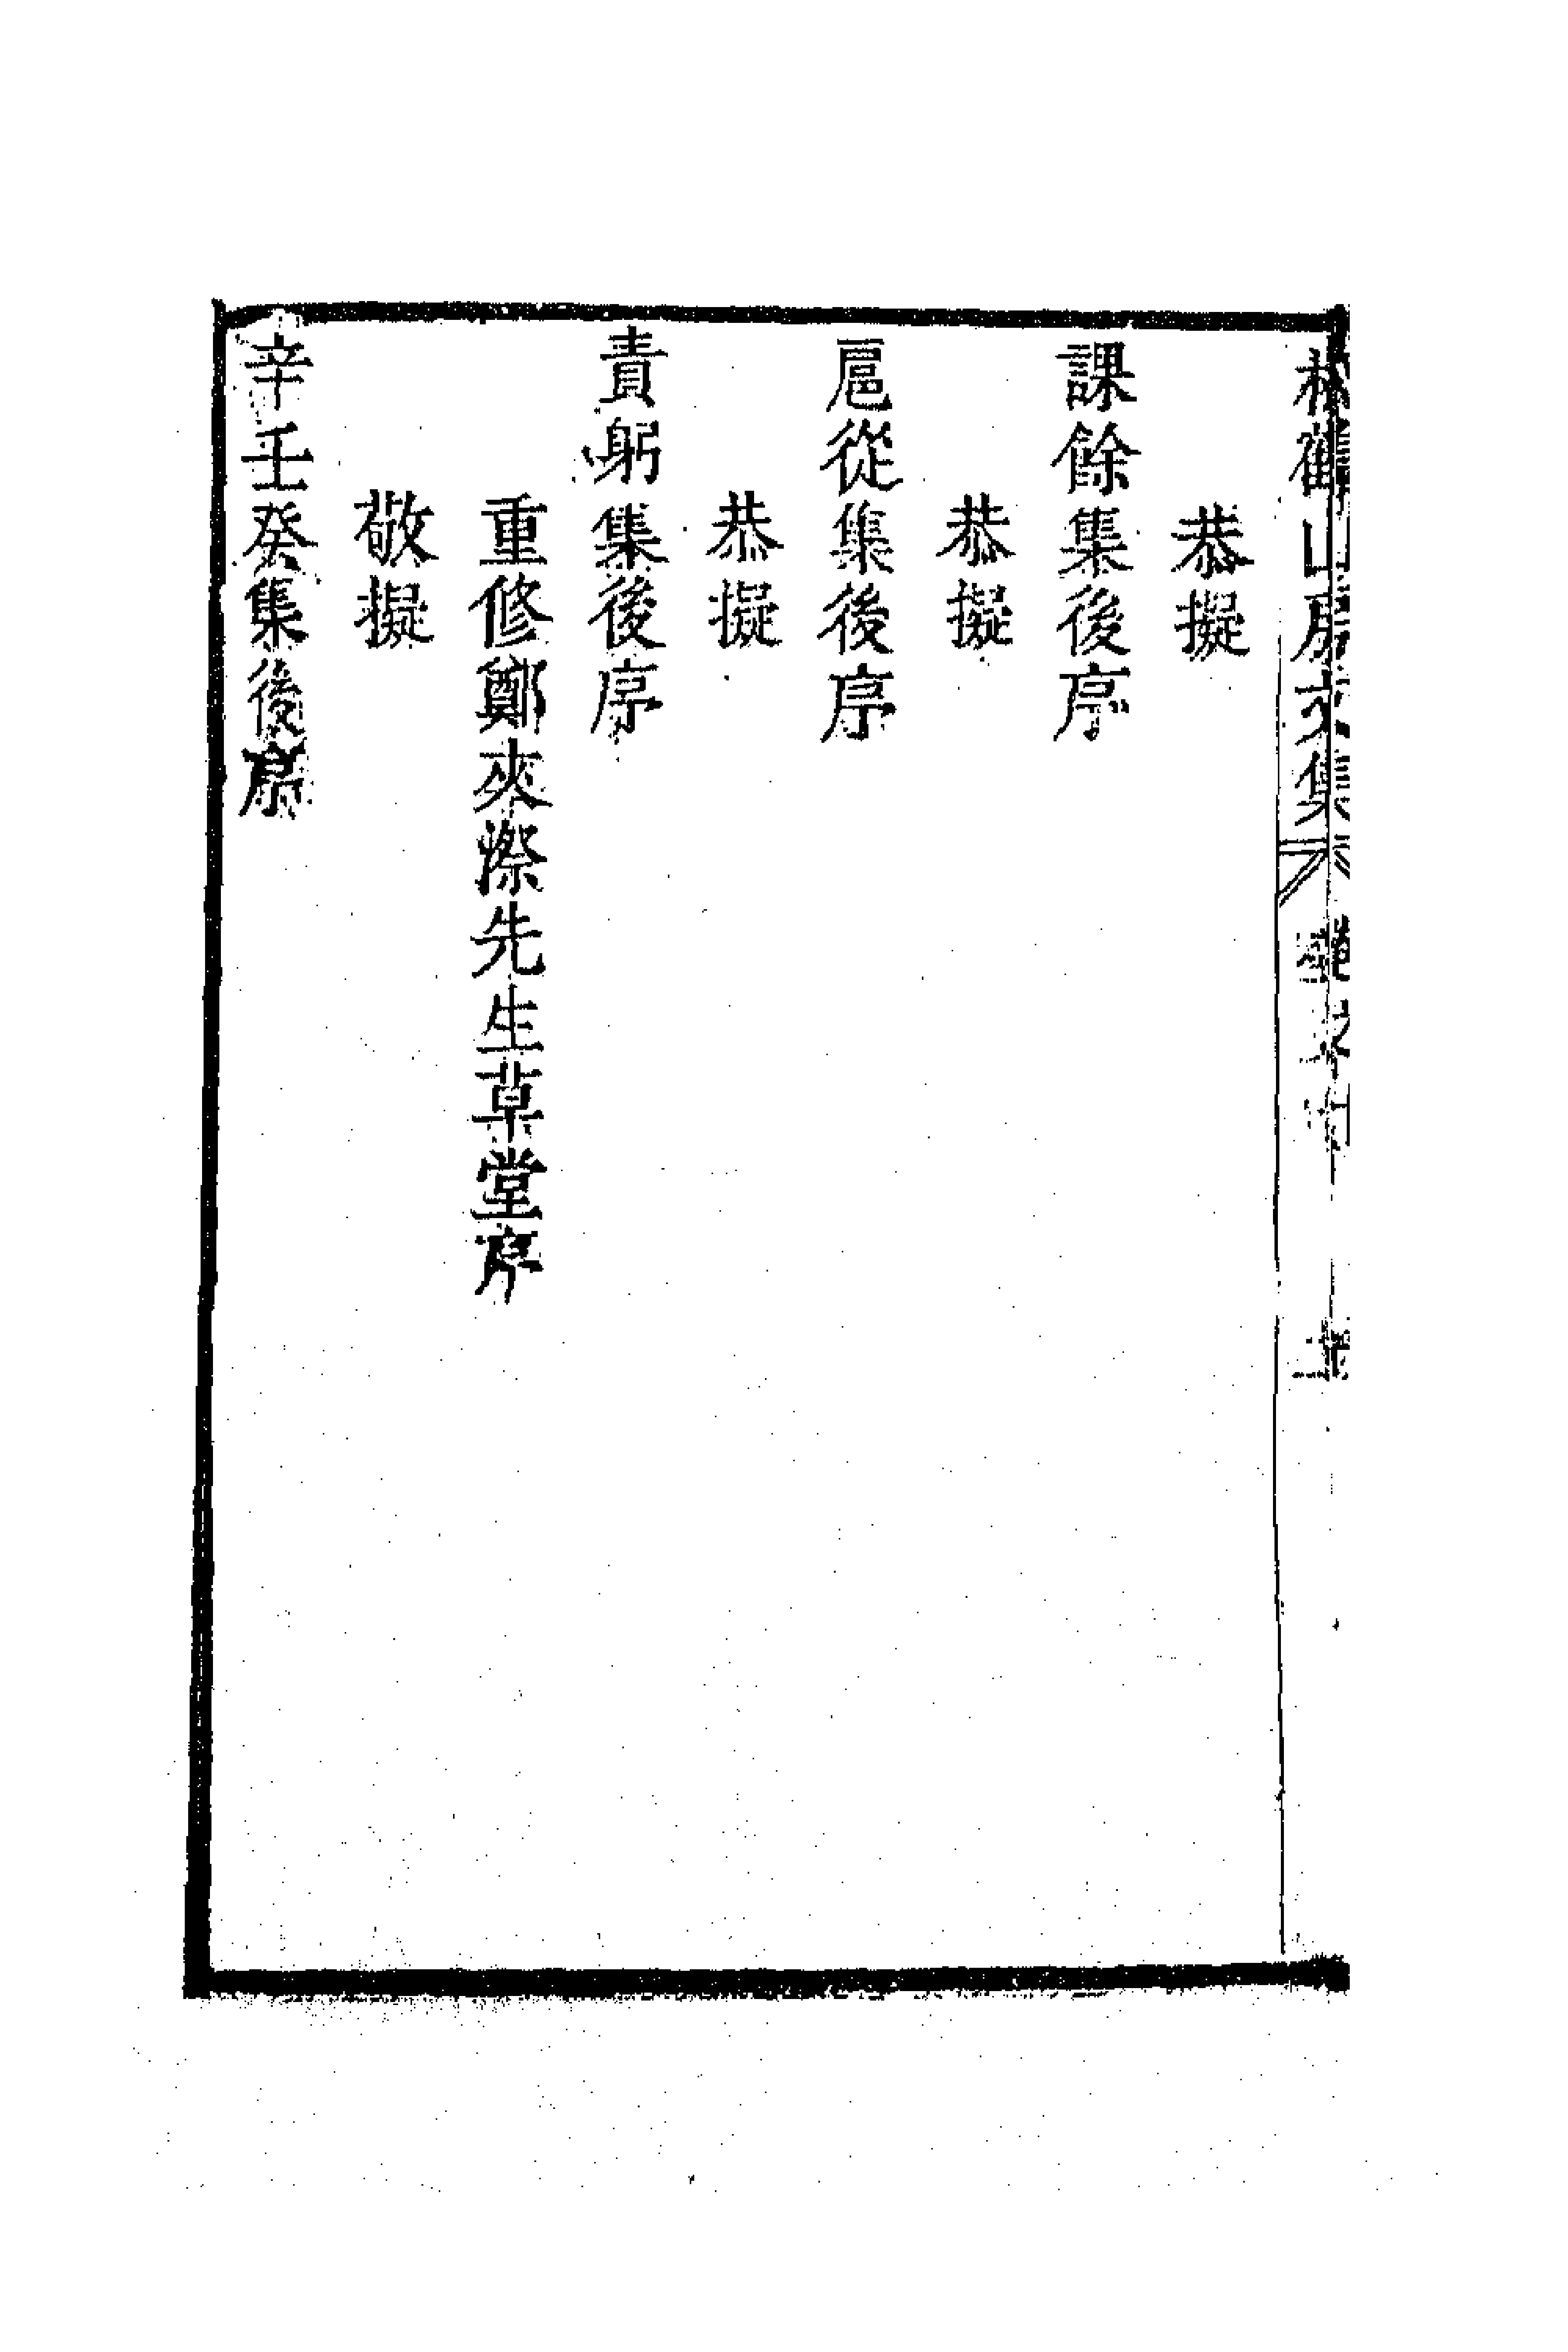 山房文集
恭擬
課餘集後序
恭擬
扈從集後序
恭擬
責躬集後序
重修鄭夾漈先生草堂序
敬擬
辛壬癸集後序